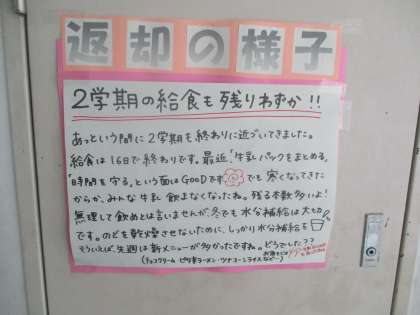 返却の様子
2学期の給食も残りわずか!!
あっという間に2学期も終わりに近づいてきました。
給食は16日で終わりです。最近「牛乳パックをまとめる。
「時間を守る」という面はGOODです でも寒くなってきた
からか、みんな牛乳飲まなくなったね。残る本数多いよ!
無理して飲めとは言いませんが、冬でも水分補給は大切
です。のどを乾燥させないために、しっかり水分補給を
そういえば、先週は新メニューが多かったですね。どうでした??
(チョコクリーム ピリ辛ラーメン・ツナコーンライスなど…)